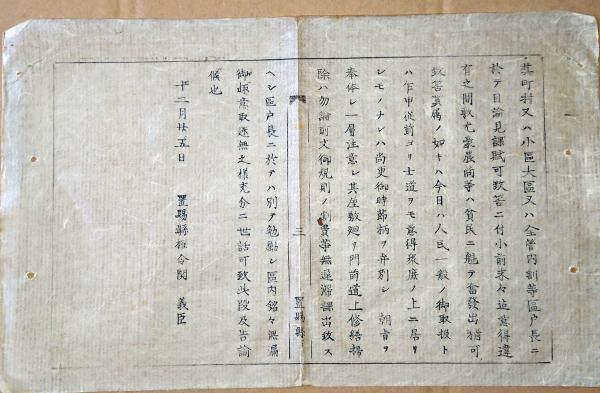 其町村又ハ小區大區又ハ全管内割等區戸長ニ
於テ目論見課賦可致筈ニ付小前末々迄意得違
有之間敷尤豪農商等ハ貧民ニ魁テ奮發出精可
致筈貫属ノ如キハ今日ハ人民一般ノ御取扱ト
ハ乍申従前ヨリ士道ヲモ意得衆庶ノ上ニ居リ
シモノナレハ尚更御時節柄ヲ弁別シ 朝旨ヲ
奉体シ一層注意シ其屋敷廻リ門前道上修繕掃
除ハ勿論町丈御規則ノ割賦等無遅滞課出致ス
三
置賜縣
ヘシ區戸長ニ於テハ別テ勉勵シ區内銘々無漏
御趣意取迷無之様充分ニ世話可致此段及告諭
候也
十二月廿五日
置賜縣権令関 義臣